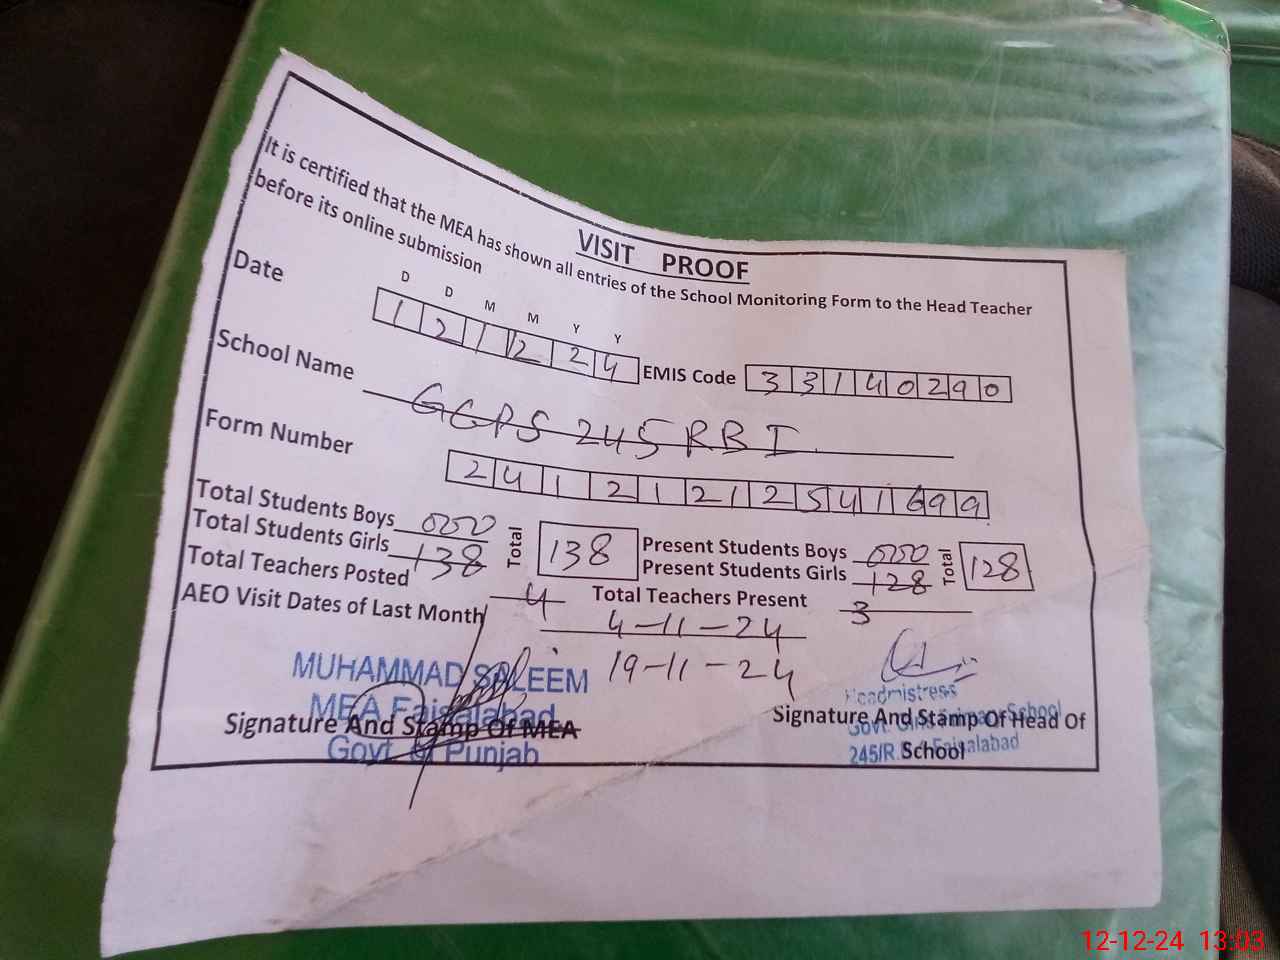 VISIT PROOF
It is certified that the MEA has shown all entries of the School Monitoring Form to the Head Teacher
before its online submission
D D M M Y Y
Date 1 2 1 2 2 4 EMIS Code 3 3 1 4 0 2 9 0
School Name GGPS 245 RB I
Form Number 2 4 1 2 1 2 1 2 5 4 1 6 9 9
Total Students Boys 000 Present Students Boys 000
Total Students Girls 138 Total 138 Present Students Girls 128 Total 128
Total Teachers Posted 4 Total Teachers Present 3
AEO Visit Dates of Last Month 4-11-24
19-11-24
MUHAMMAD SALEEM
MEA Faisalabad
Govt. of Punjab
Signature And Stamp Of MEA
Headmistress
Govt. Girls Primary School
245/R Faisalabad
Signature And Stamp Of Head Of
School
12-12-24 13:03